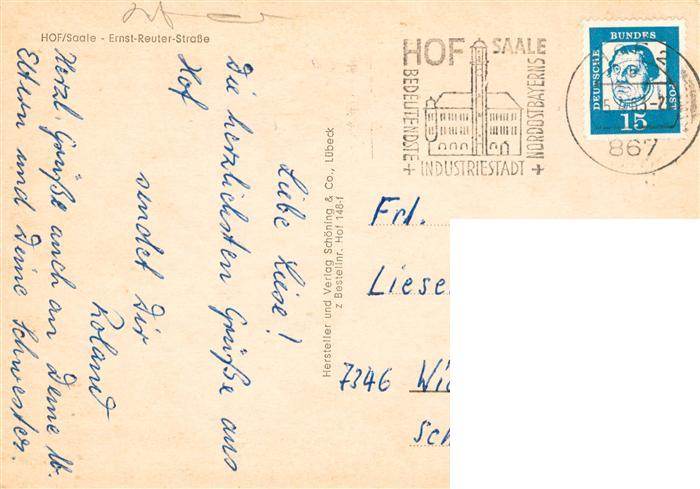 HOF/Saale - Ernst-Reuter-Straße
Liebe Liese!
Die herzlichsten Grüße aus
Hof
sendet Dir
Roland
Herzl. Grüße auch an Deine lb.
Eltern und Deine Schwester.
Hersteller und Verlag Schöning & Co., Lübeck
z Bestellnr. Hof 148-f
HOF SAALE
BEDEUTENDSTE
INDUSTRIESTADT
NORDOSTBAYERNS
DEUTSCHE BUNDES POST
15
867
Frl.
Liese
7346 Wi
Sch